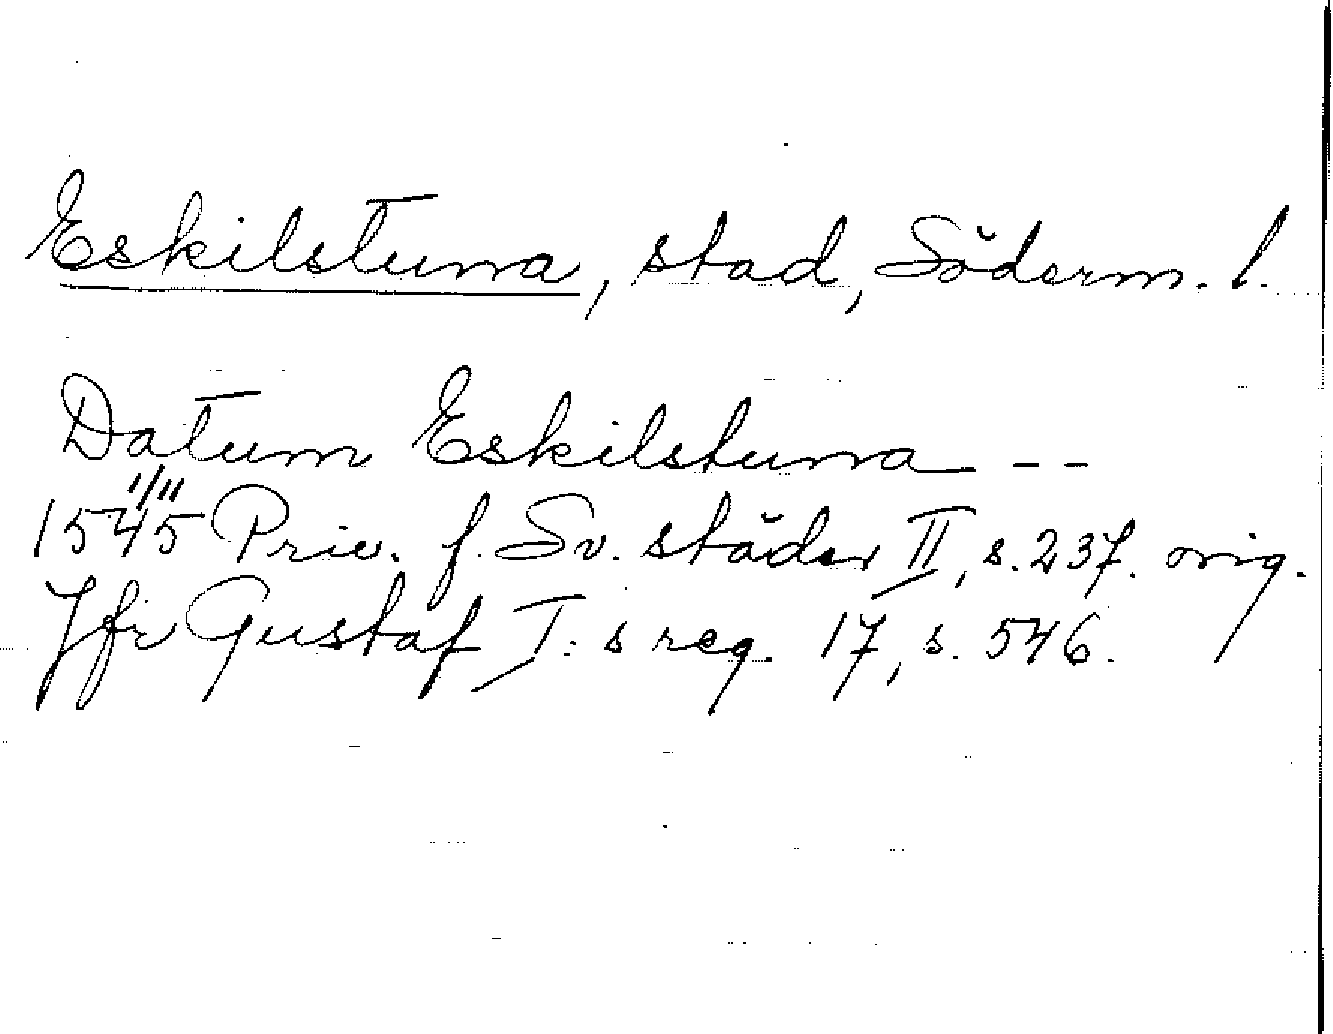 Eskilstuna, stad, Söderm. l.
Datum Eskilstuna - -
1545 1/11 Priv. f. Sv. städer II, s. 237. orig.
Jfr Gustaf I: s reg. 17, s. 546.